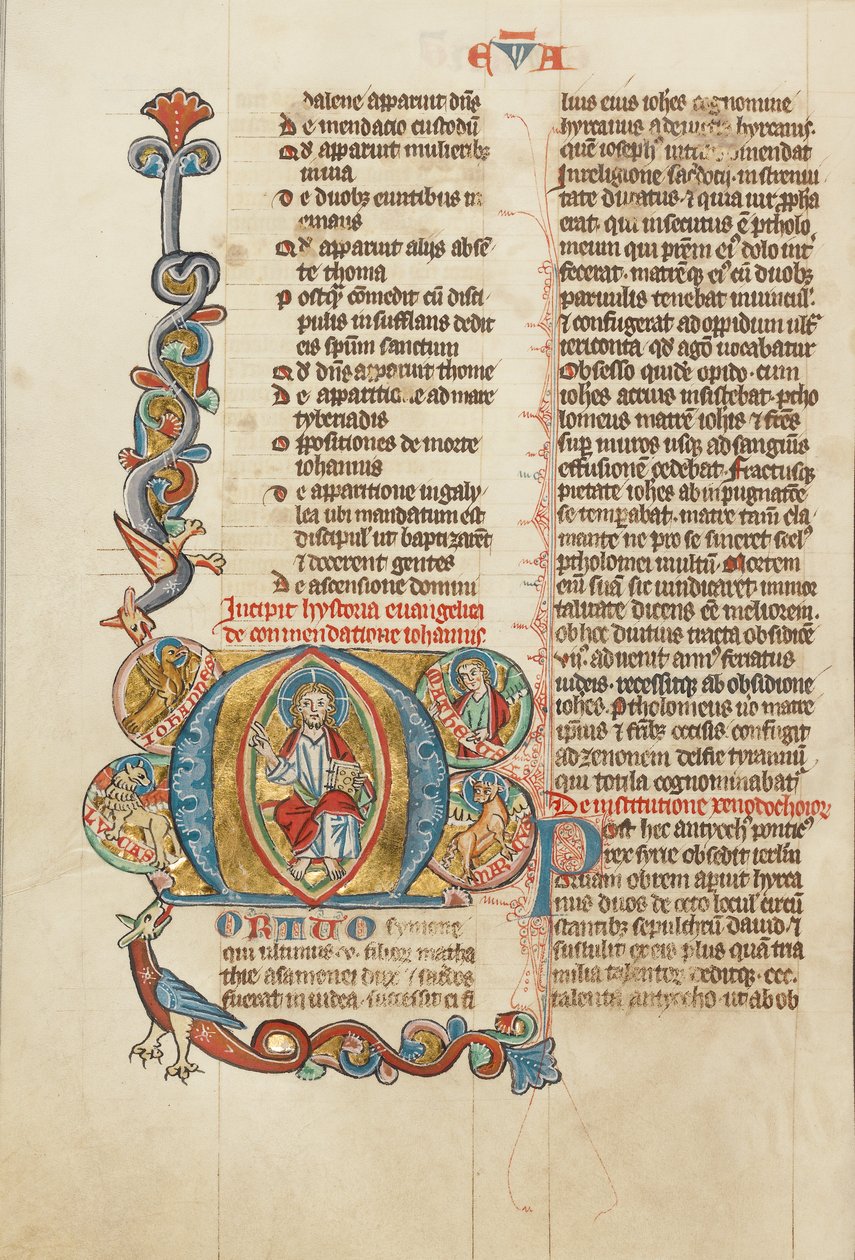 EVA
dalene apparuit dn̄s
De mendacio custodū
Qd̄ apparuit mulieribꝫ
in uia
De duobꝫ euntibus in
emaus
Qd̄ apparuit alijs absē
te thoma
Postq̄ cōmedit cū disci
pulis insufflans dedit
eis spm̄ sanctum
Qd̄ dn̄s apparuit thome
De apparitione ad mare
tyberiadis
Oppositiones de morte
iohannis
De apparitione in galy
lea ubi mandatum est
discipulꝰ ut baptizarēt
⁊ docerent gentes
De ascensione domini
Incipit hystoria euangelica
de commendatione iohannis
IOHANNES
MATHEUS
LVCAS
MARCVS
MORTVO symone
qui ultimus .v. filioꝝ matha
thie asamonei dux ⁊ sac̄dos
fuerat in iudea. successit ei fi
lius eius ioh̄es cognomine
hyrcanus a deuictis hyrcanis.
quē ioseph
In religione sac̄dotij. in strenui
tate ducatus. ⁊ quia uir ꝓpha
erat. qui insecutus ē ptholo
meum qui pr̄em eiꝰ dolo int̄
fecerat. matrēqꝫ eiꝰ cū duobꝫ
paruulis tenebat in uinculꝭ.
⁊ confugerat ad oppidum ult̄
iericonta. qd̄ agon uocabatur
Obsesso quidē opido. cum
ioh̄es acrius insistebat. ptho
lomeus matrē ioh̄is ⁊ fr̄es
sup̄ muros usqꝫ ad sanguīs
effusionē cedebat. Fractusqꝫ
pietate ioh̄es ab inpugnatōe
se temꝑabat. matre tam̄ cla
mante ne pro se sineret scelꝰ
ptholomei inultū. Mortem
eni suā sic uindicaret. immor
talitate dicens eē meliorem.
ob hec diutius tracta obsidiōe
.vij. aduenit annꝰ feriatus
iudeis. recessitqꝫ ab obsidione
ioh̄es. Ptholomeus uo matre
ip̄ius ⁊ fr̄ibꝫ occisis confugit
ad zenonem delfie tyrannū
qui totila cognominabatꝰ
De institutione xenodochioꝝ
Post hec antyochꝰ pontic̄ꝰ
rex syrie obsedit ierl̄m
Quam obrem aperuit hyrca
nus duos de octo loculꝭ circū
stantibꝫ sepulchrū dauid. ⁊
sustulit ex eis plus quā tria
milia talentoꝝ. deditqꝫ .ccc.
talenta antyocho. ut ab ob